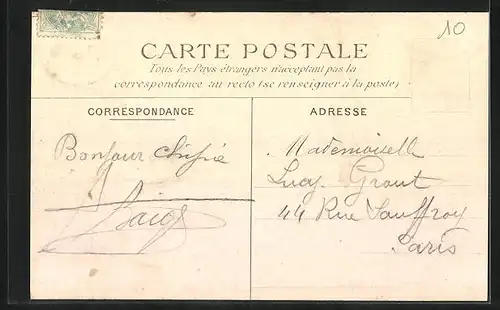 10
CARTE POSTALE
Tous les Pays étrangers n'acceptant pas la
correspondance au recto (se renseigner à la poste)
CORRESPONDANCE
ADRESSE
Bonjour
Mademoiselle
Lucy
44 Rue Jouffroy
Paris